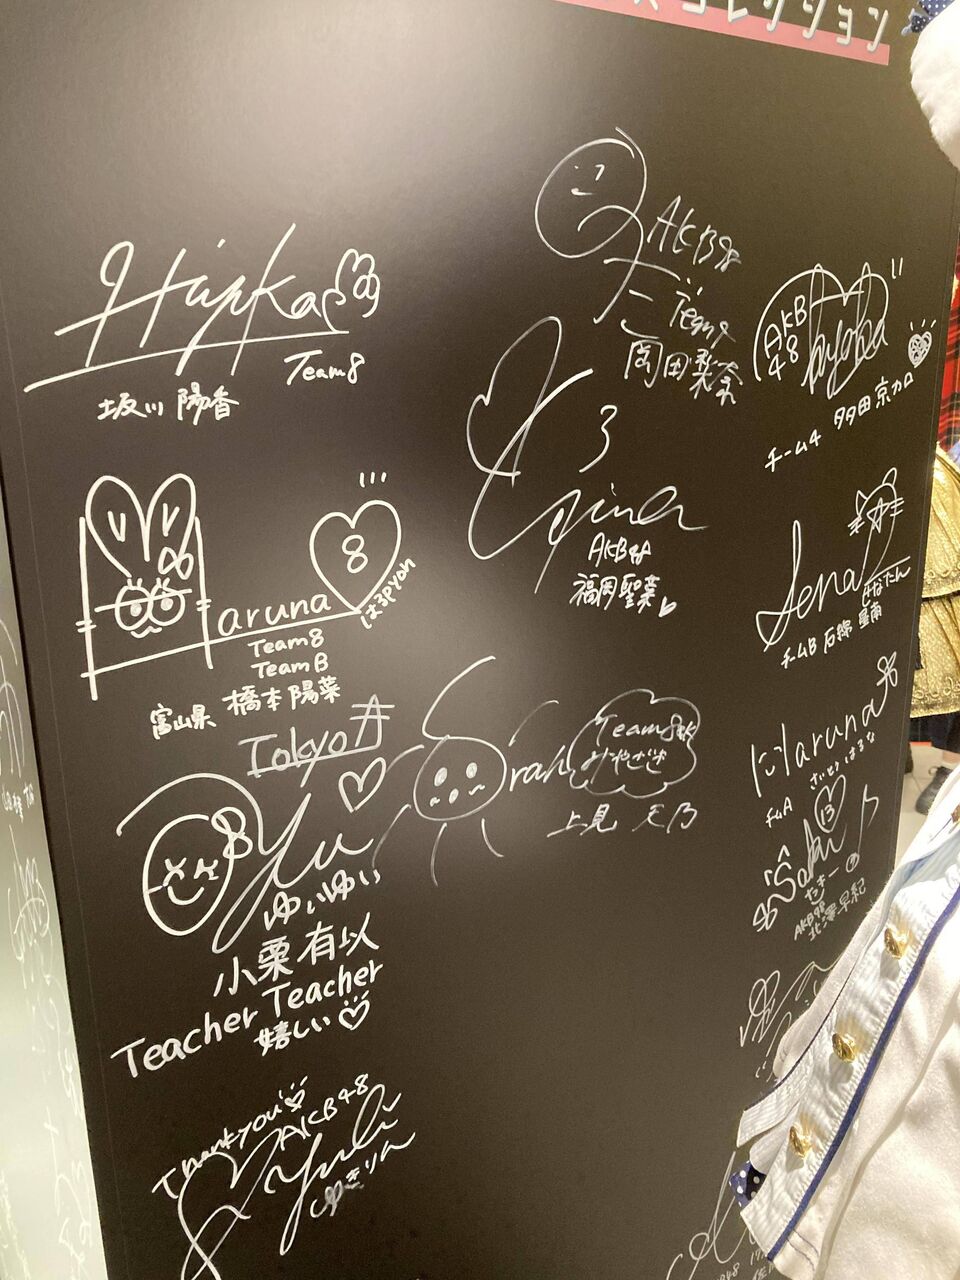 コレクション
Hipka
Team8
坂川 陽香
AKB48
Team4
岡田梨奈
AKB
48
kyoka
チーム4 多田 京加
aruna
8
はるpyon
Team8
TeamB
富山県 橋本陽菜
AKB48
福岡聖菜
Sena
せなたん
チームB 石綿 星南
Haruna
さいとう はるな
チームA
13
Saki
AKB48
北澤早紀
Team8
みやざき
上見 天乃
Tokyo
Yui
ゆいゆい
小栗 有以
Teacher Teacher
嬉しい
Thankyou
AKB48
Yuki
ゆきりん